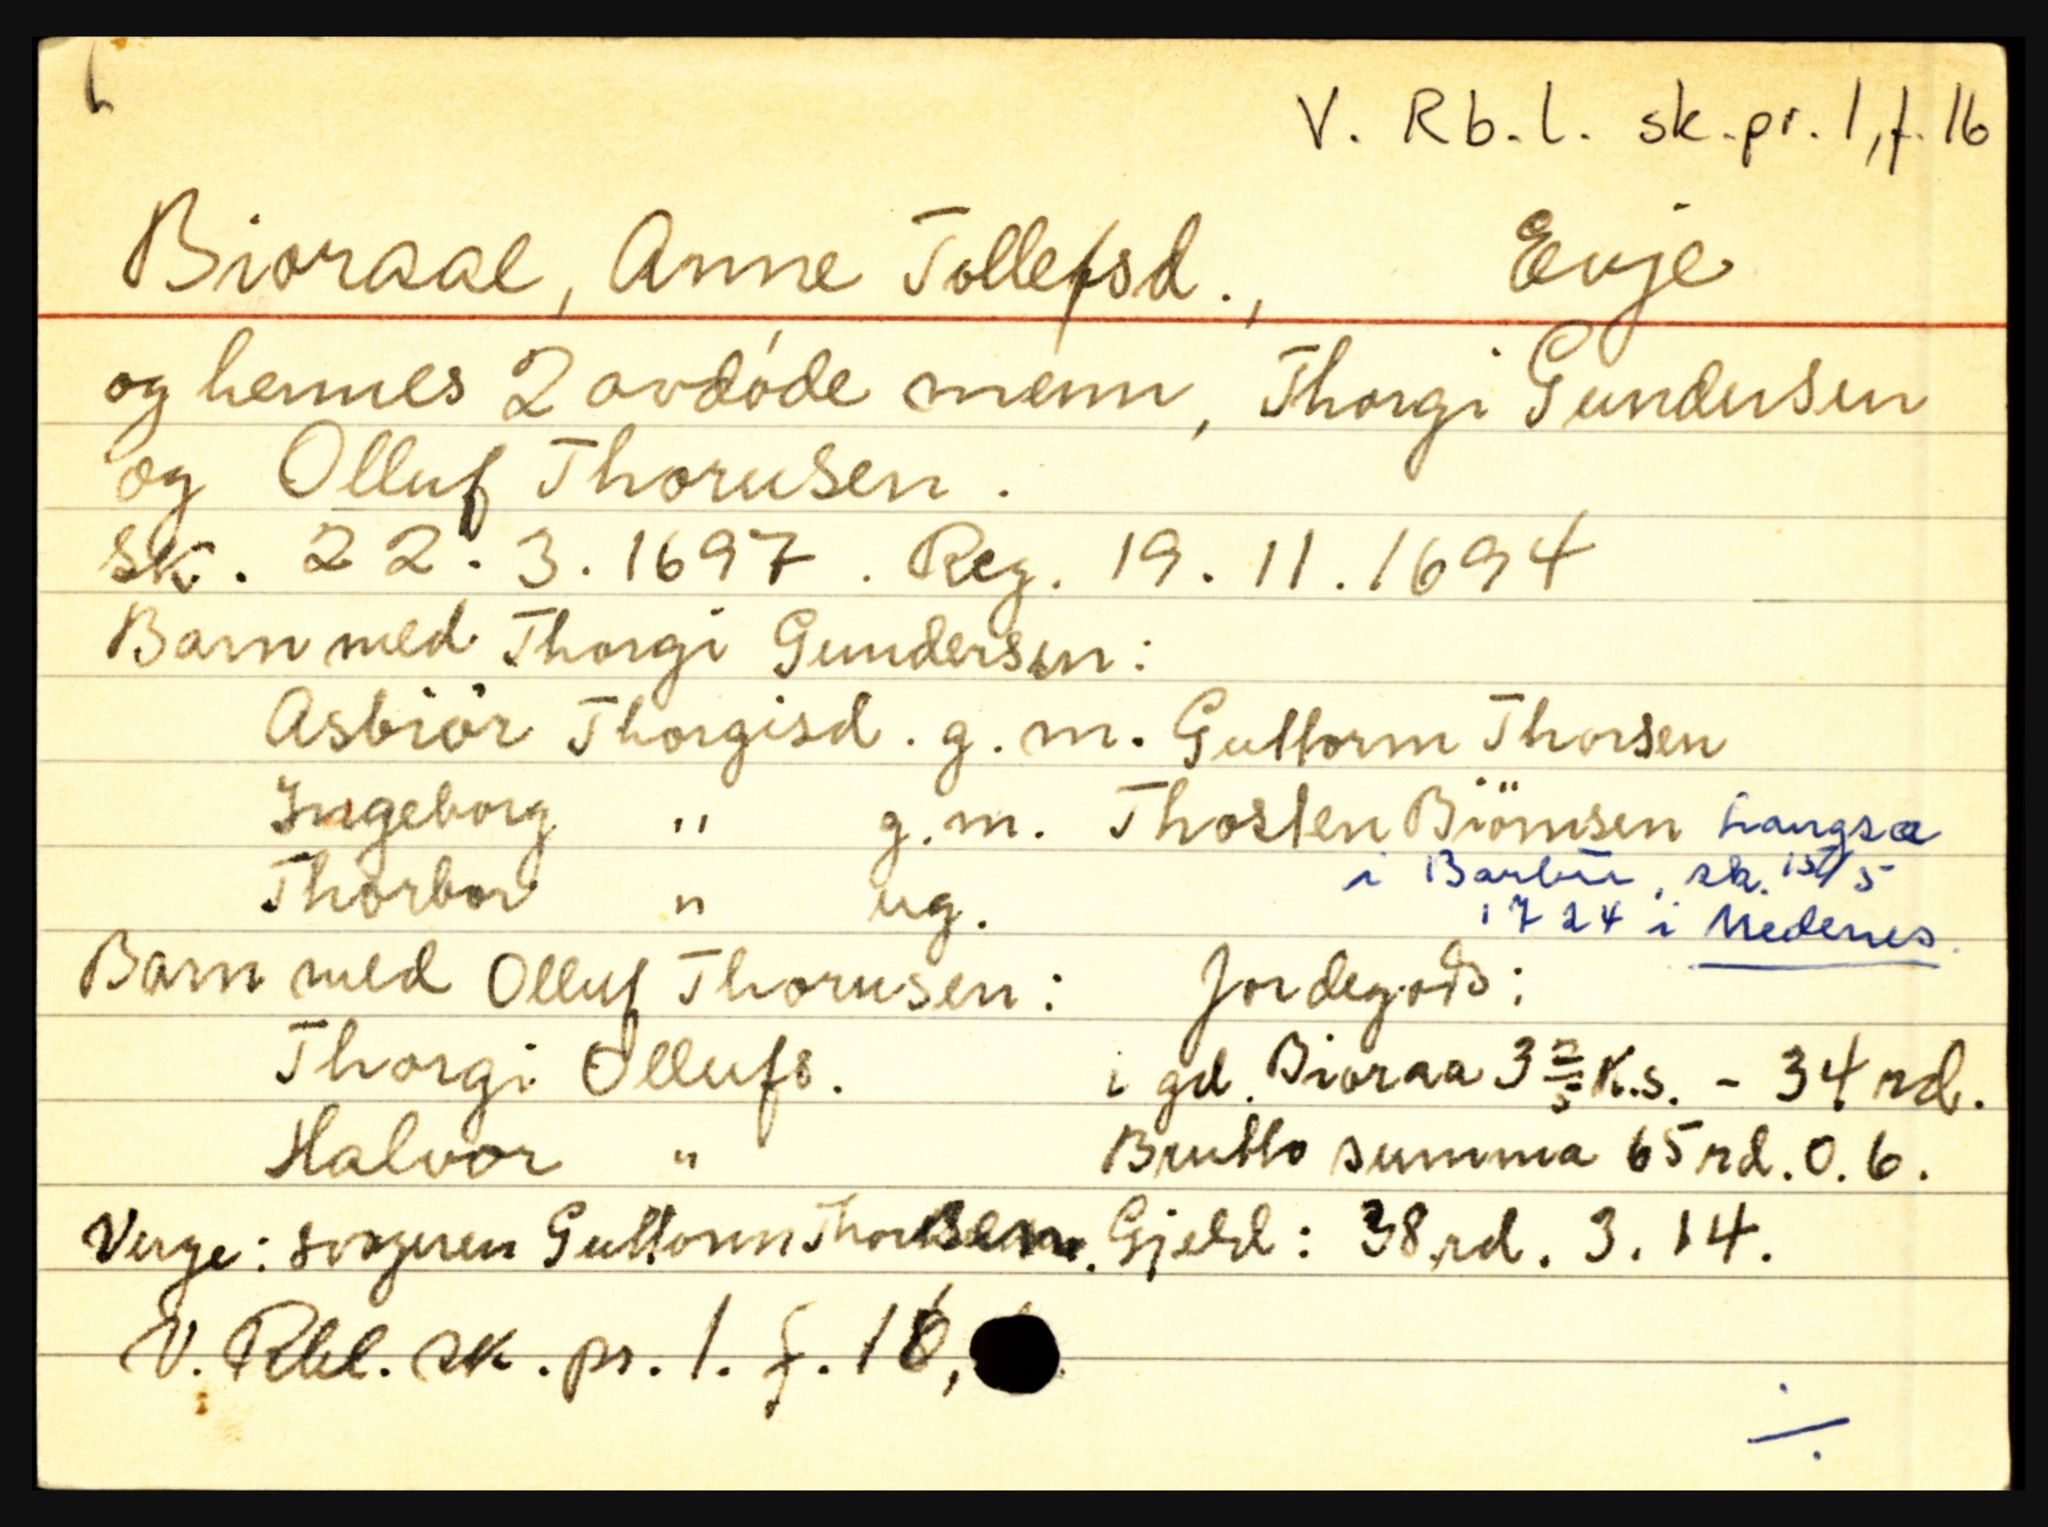 V. Rb.l. sk.pr. 1, f. 16
Bioraae, Anne Tollefsd., Evje
og hennes 2 avdøde menn, Thorgi Gundersen
og Olluf Thorusen.
Sk. 22.3.1697. Reg. 19.11.1694
Barn med Thorgi Gundersen:
Asbiør Thorgisd. g.m. Guttorm Thorsen
Ingeborg " g.m. Thosten Biörnsen Langsæ
i Barbu, sk. 15/5
1724 i Nedenes.
Thorbor " ug.
Barn med Olluf Thorusen: Jordegods:
Thorgi Ollufs. i gd. Bioraa 3 K.s. - 34 rd.
Halvor " Brutto summa 65 rd. 0. 6.
Verge: svogeren Guttorm Thorsen. Gjeld: 38 rd. 3. 14.
V. Rbl. sk. pr. 1. f. 16,